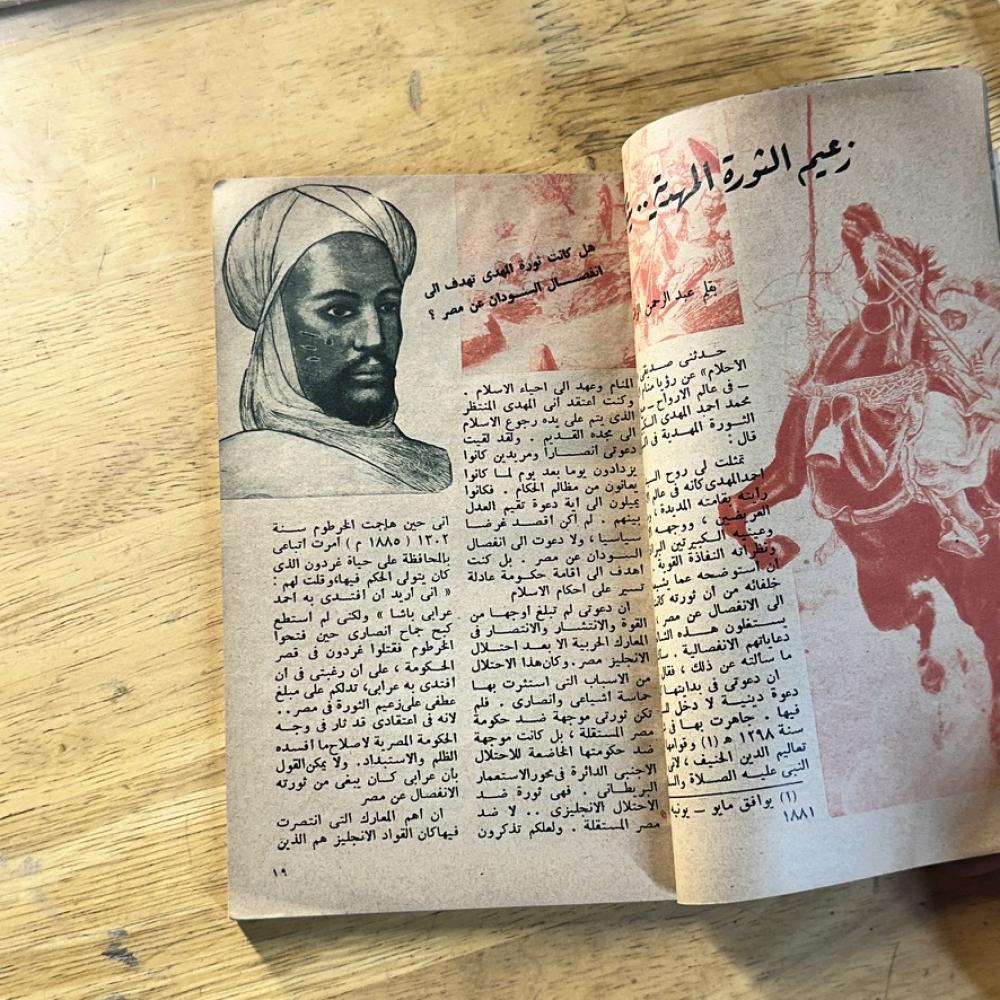 زعيم الثورة المهدية ..
بقلم عبد الرحمن
حدثنى صديقى
الأحلام» عن رؤيا
ـ فى عالم الارواح ـ
محمد احمد المهدى
الثورة المهدية فى
قال :
تمثلت لى روح
احمد المهدى كانه فى عالم
رايته بقامته المديدة ،
العريضين ، ووجهه
وعينيه الكبيرتين
ونظراته النفاذة القوية
أن أستوضحه عما
خلفائه من أن ثورته
الى الانفصال عن مصر
يستغلون هذه
دعاياتهم الانفصالية .
ما سألته عن ذلك ، فقال
ان دعوتى فى بدايتها
دعوة دينية لا دخل
فيها . جاهرت بها فى
سنة ١٢٩٨ هـ (١) وقوامها
تعاليم الدين الحنيف ،
النبى عليه الصلاة
(١) يوافق مايو ـ يونيه
١٨٨١
هل كانت ثورة المهدى تهدف الى
انفصال السودان عن مصر ؟
المنام وعهد الى احياء الاسلام .
وكنت اعتقد انى المهدى المنتظر
الذى يتم على يده رجوع الاسلام
الى مجده القديم . ولقد لقيت
دعوتى انصارا ومريدين كانوا
يزدادون يوما بعد يوم لما كانوا
يعانون من مظالم الحكام . فكانوا
يميلون الى اية دعوة تقيم العدل
بينهم . لم أكن اقصد غرضا
سياسيا ، ولا دعوت الى انفصال
السودان عن مصر . بل كنت
اهدف الى اقامة حكومة عادلة
تسير على أحكام الاسلام
ان دعوتى لم تبلغ اوجها من
القوة والانتشار والانتصار فى
المعارك الحربية الا بعد احتلال
الانجليز مصر. وكان هذا الاحتلال
من الاسباب التى استثرت بها
حماسة أشياعى وانصارى . فلم
تكن ثورتى موجهة ضد حكومة
مصر المستقلة ، بل كانت موجهة
ضد حكومتها الخاضعة للاحتلال
الاجنبى الدائرة فى محور الاستعمار
البريطانى . فهى ثورة ضد
الاحتلال الانجليزى .. لا ضد
مصر المستقلة . ولعلكم تذكرون
انى حين هاجمت الخرطوم سنة
١٣٠٢ ( ١٨٨٥ م ) أمرت أتباعى
بالمحافظة على حياة غردون الذى
كان يتولى الحكم فيها، وقلت لهم :
« انى اريد ان افتدى به احمد
عرابى باشا » ولكنى لم استطع
كبح جماح انصارى حين فتحوا
الخرطوم فقتلوا غردون فى قصر
الحكومة ، على أن رغبتى فى أن
افتدى به عرابى، تدلكم على مبلغ
عطفى على زعيم الثورة فى مصر..
لانه فى اعتقادى قد ثار فى وجه
الحكومة المصرية لاصلاح ما أفسده
الظلم والاستبداد. ولا يمكن القول
بأن عرابى كان يبغى من ثورته
الانفصال عن مصر
ان اهم المعارك التى انتصرت
فيها كان القواد الانجليز هم الذين
١٩